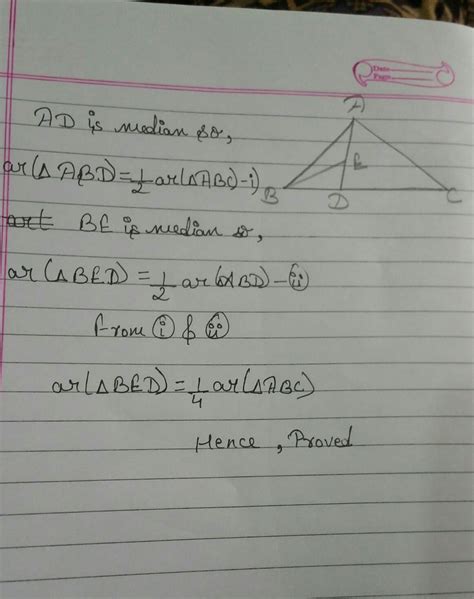 Date
Page
A
AD is median so,
E
ar(△ABD)=1/2 ar(△ABC)-i)
B D C
art BE is median so,
ar(△BED)=1/2 ar(△ABD)-ii
from i & ii
ar(△BED)=1/4 ar(△ABC)
Hence, Proved